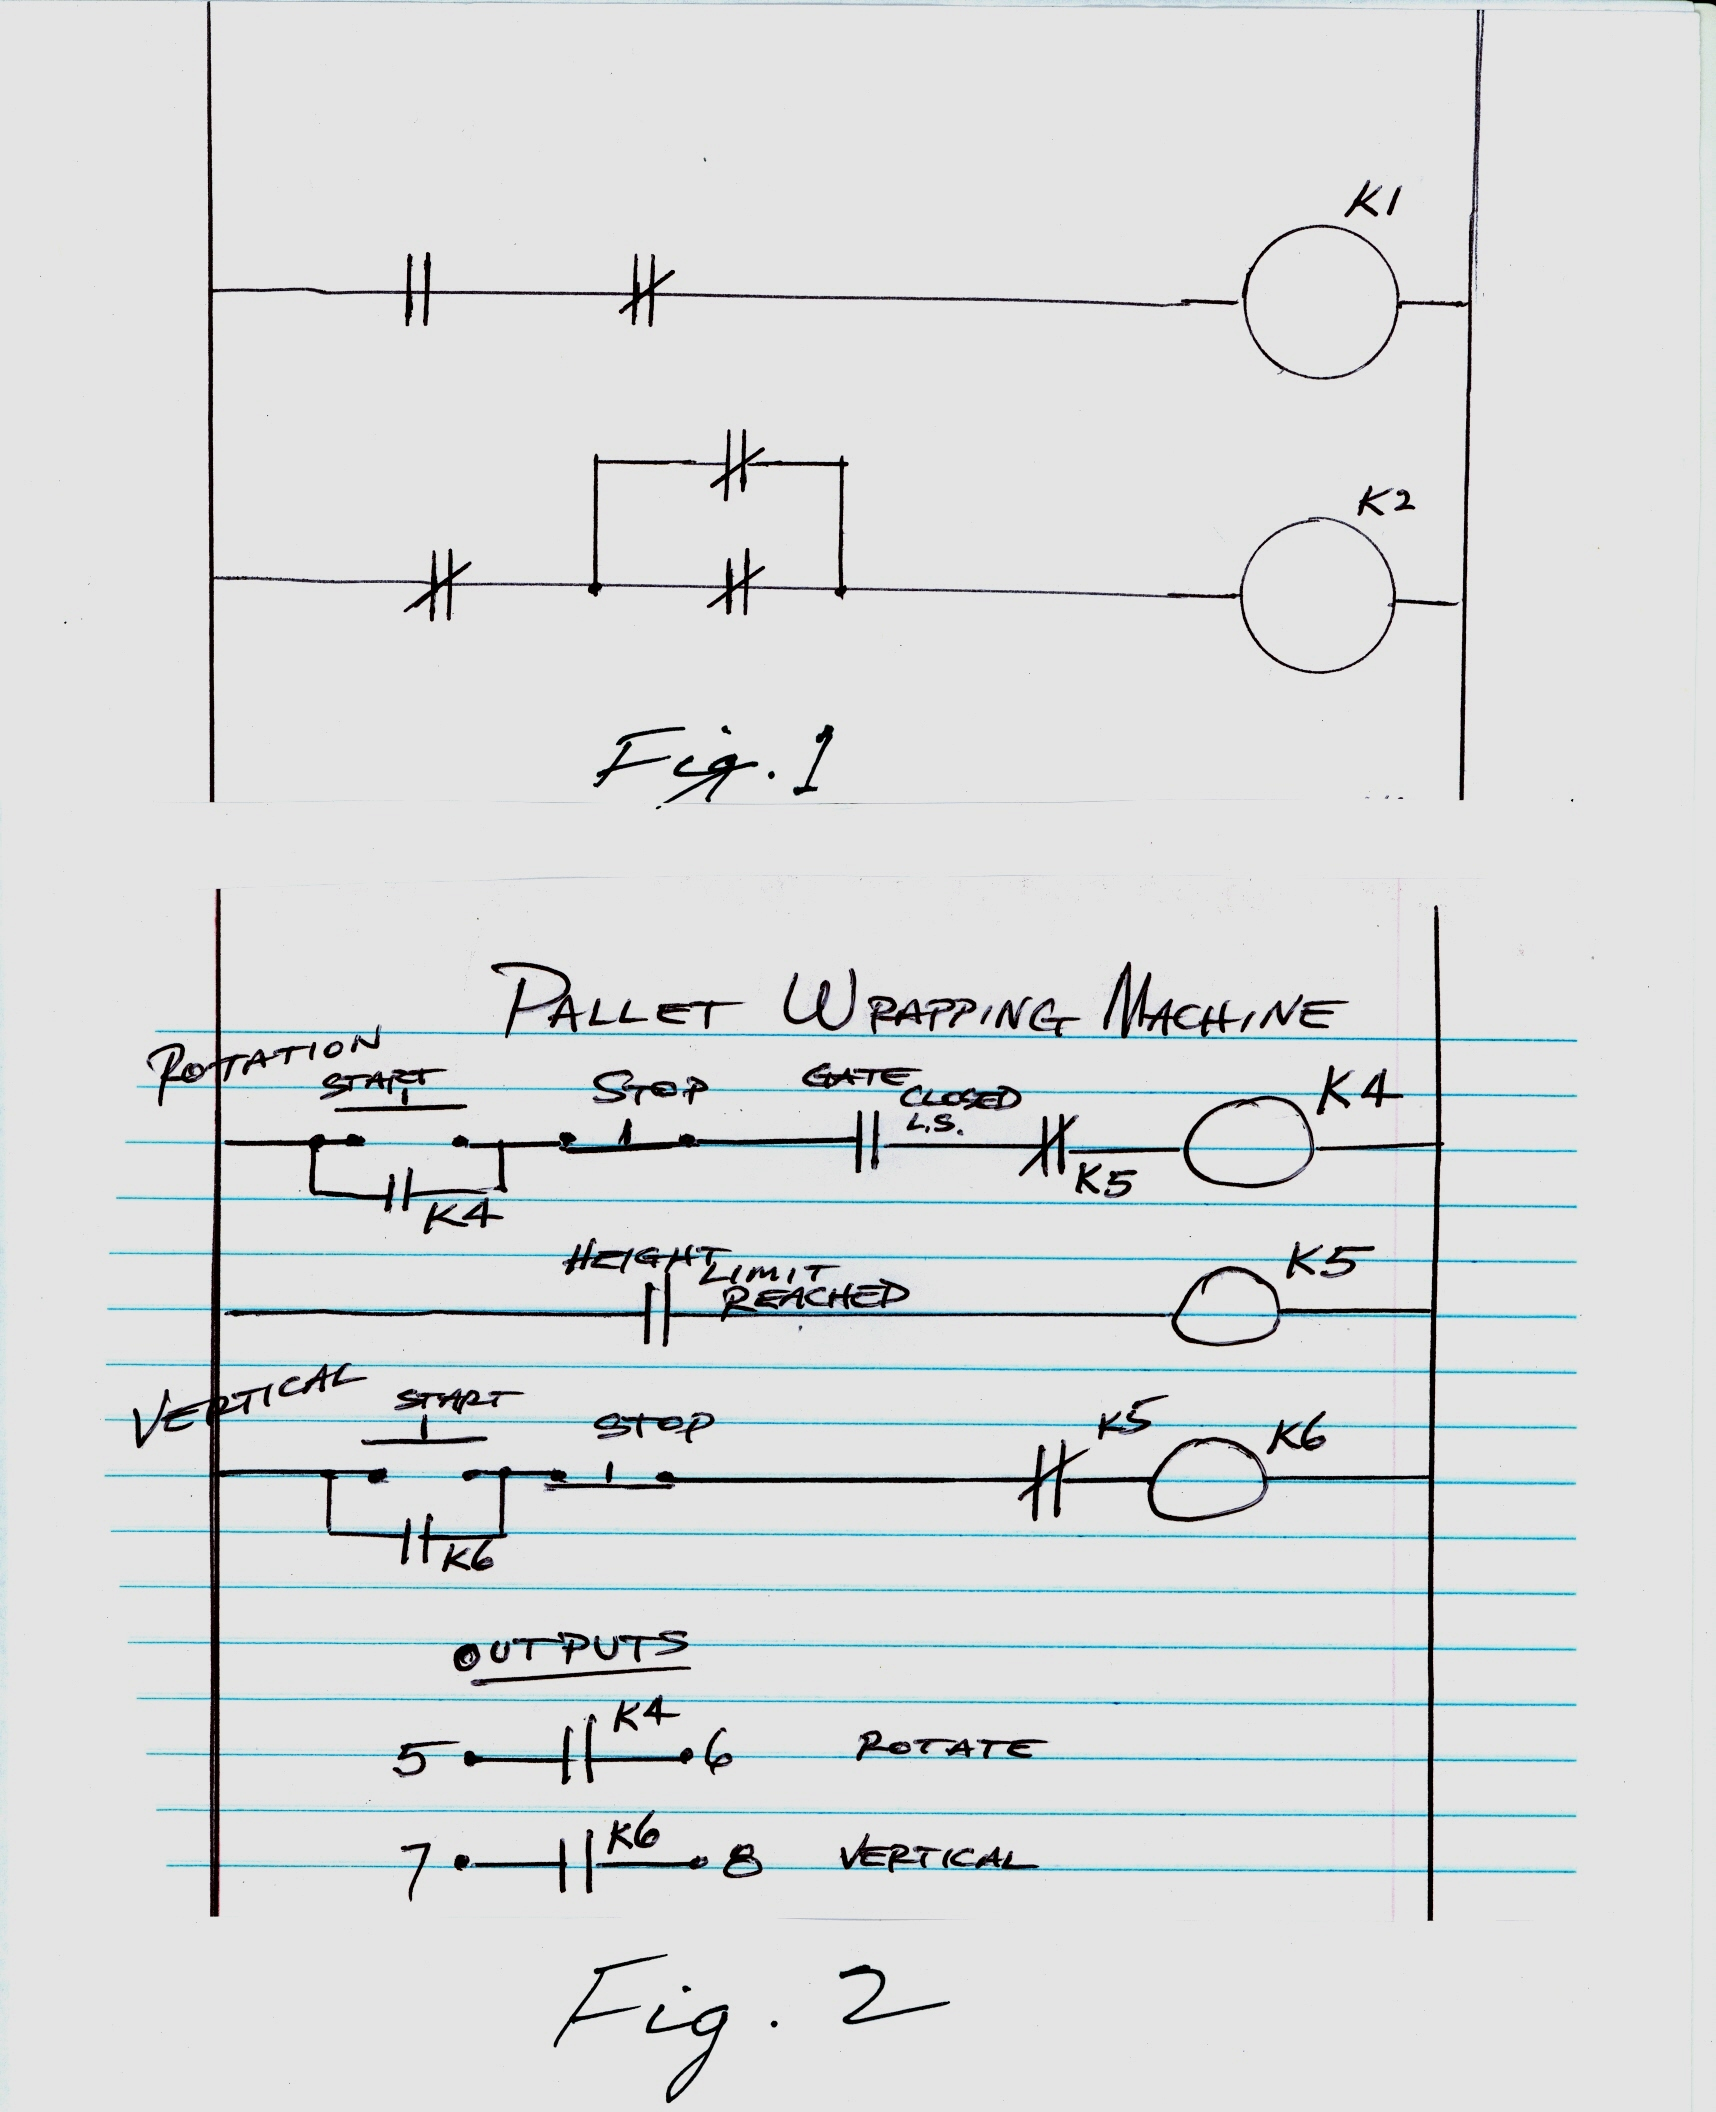 K1
K2
Fig. 1
PALLET WRAPPING MACHINE
ROTATION
START
STOP
GATE CLOSED
L.S.
K4
K5
K4
HEIGHT LIMIT
REACHED
K5
VERTICAL
START
STOP
K5
K6
K6
OUTPUTS
5 K4 6 ROTATE
7 K6 8 VERTICAL
Fig. 2